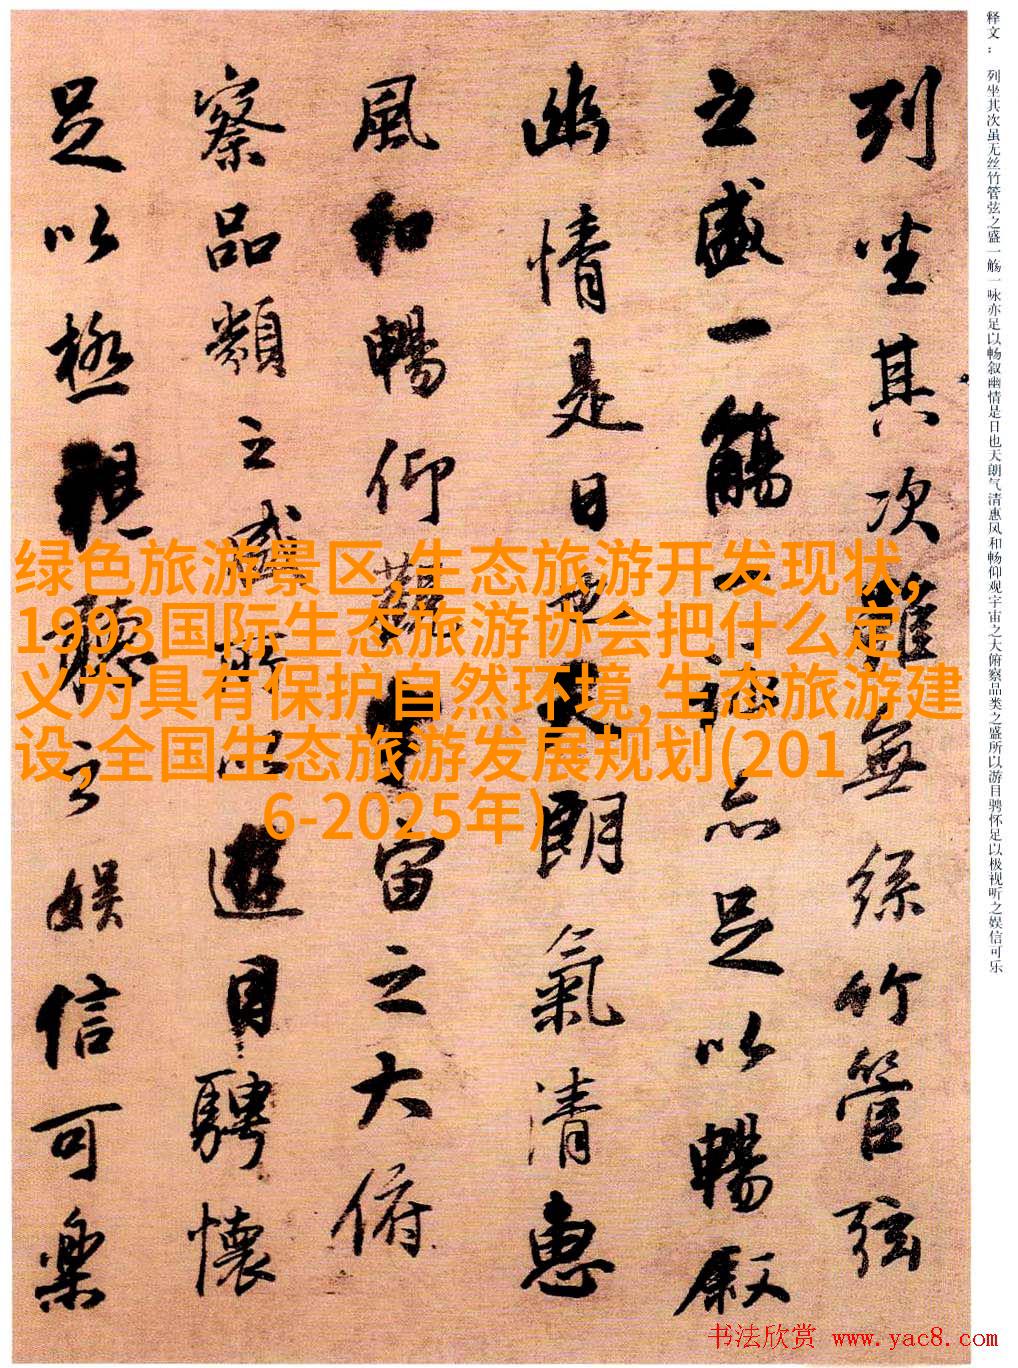 释文： 列坐其次虽无丝竹管弦之盛一觞一咏亦足以畅叙幽情是日也天朗气清惠风和畅仰观宇宙之大俯察品类之盛所以游目骋怀足以极视听之娱信可乐
列坐其次雖無絲竹管弦
之盛一觴一詠亦足以暢叙
幽情是日也天朗氣清惠
風和暢仰觀宇宙之大俯
察品類之盛所以遊目騁懷
足以極視聽之娛信可樂
绿色旅游景区,生态旅游开发现状,
1993国际生态旅游协会把什么定
义为具有保护自然环境,生态旅游建
设,全国生态旅游发展规划(201
6-2025年)
书法欣赏 www.yac8.com